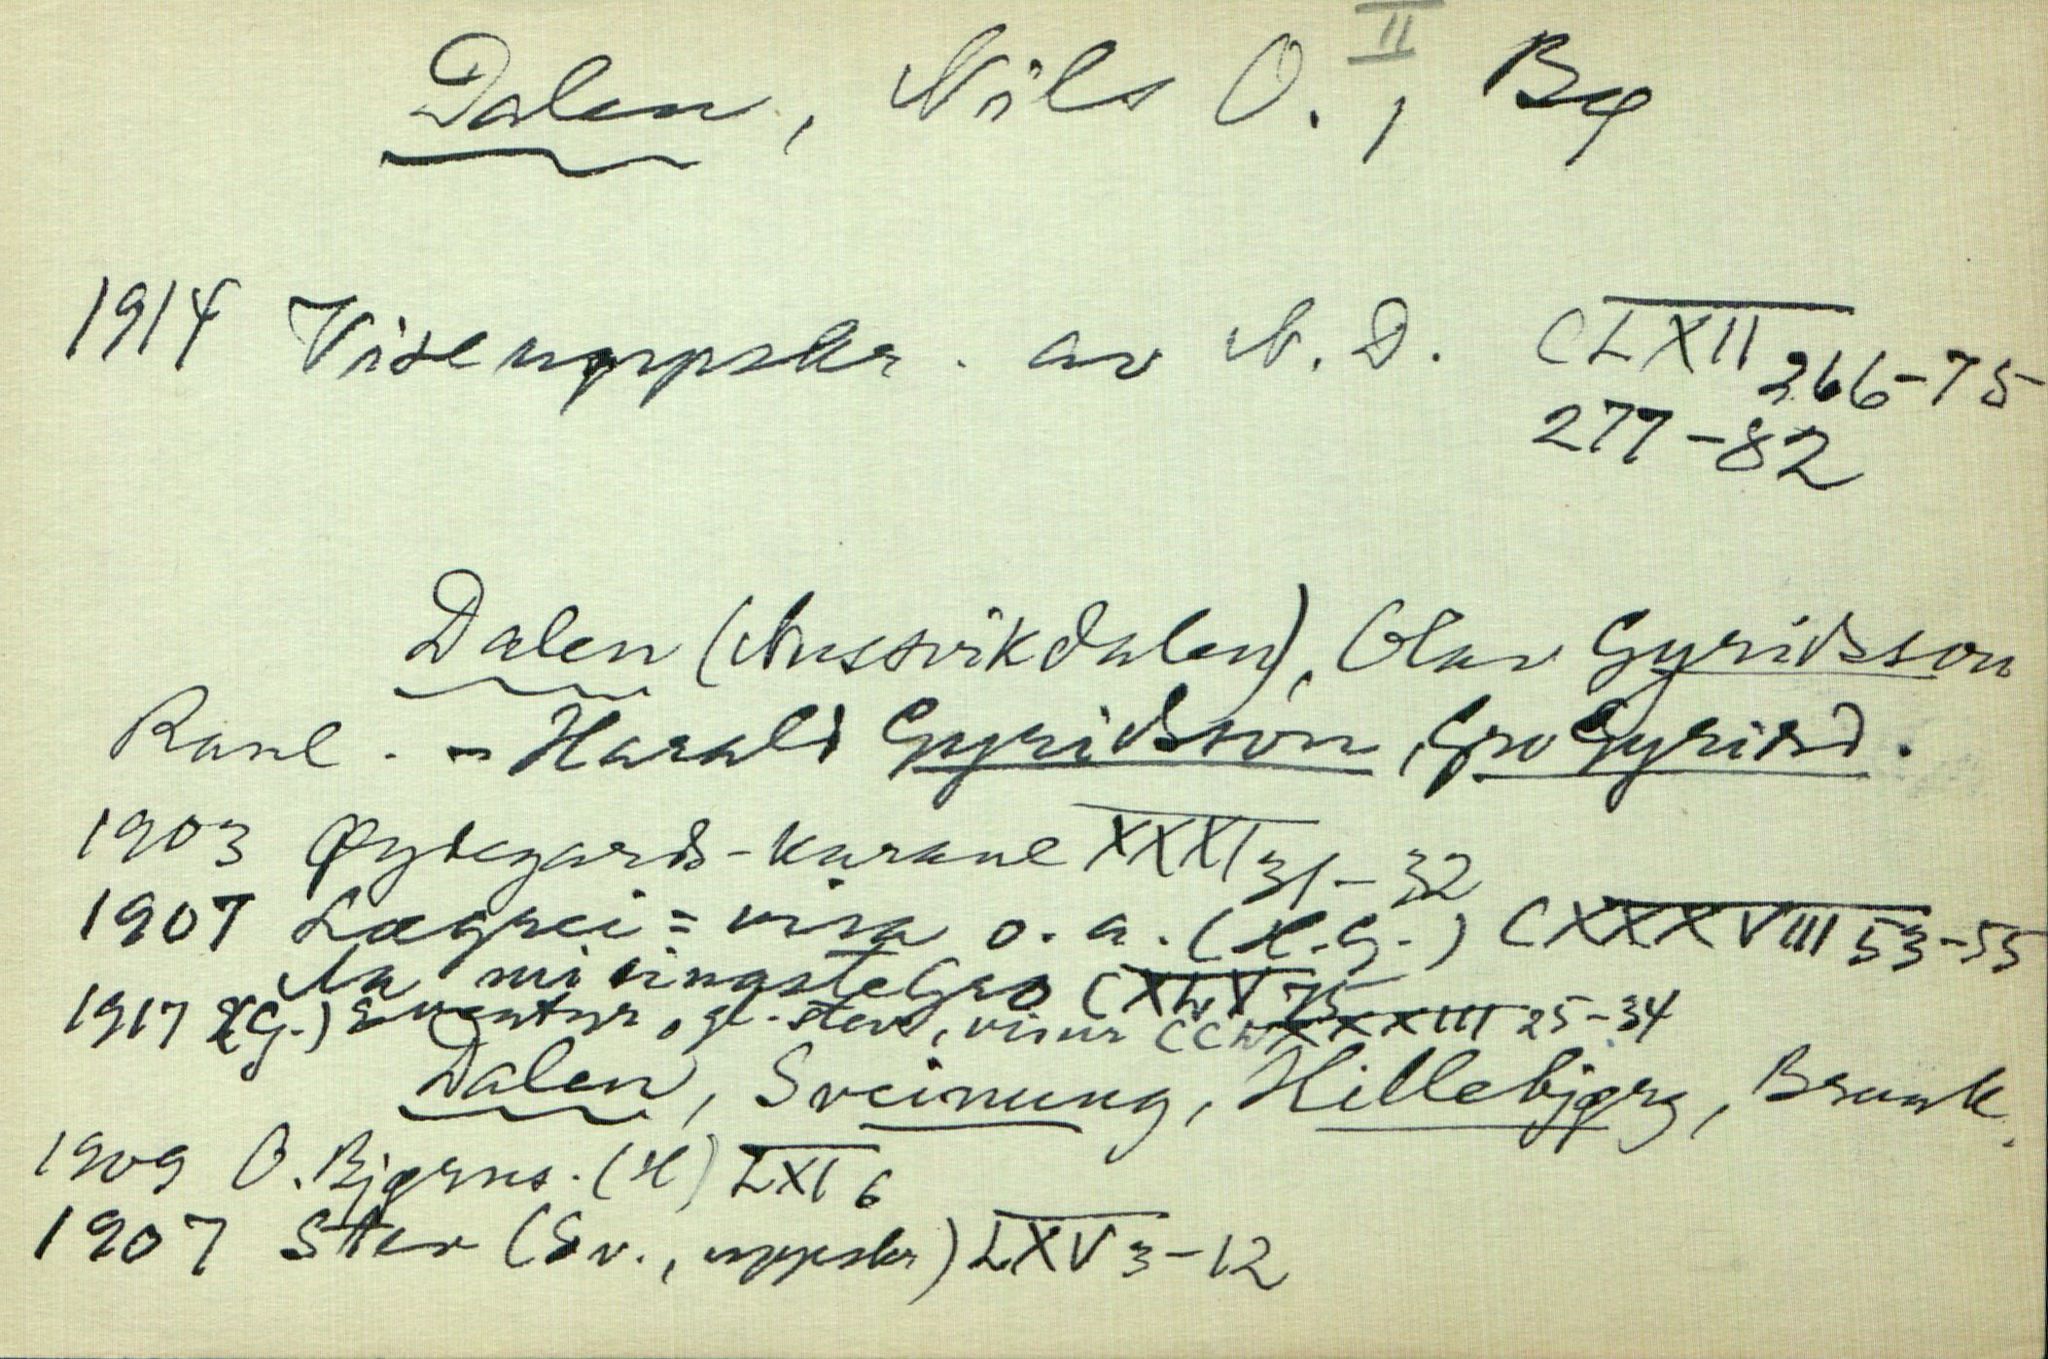 II
Dalen, Nils O., Bø
1914 Viseuppskr. av N. D. CLXII 266-75
277-82
Dalen (Aussvikdalen), Olav Gyridsson
Raul. - Harald Gyridson, Gro Gyrisd.
1903 Øydegards-karane XXXI 31-32
1907 Lægrei=visa o. a. (H.G.) CXXXVIII 53-55
Gro 75
1917 (H G.) Eventyr, gl. stev, visur 25-34
Dalen, Sveinung, Hillebjørg, Brunk.
1909 O. Bjørns. (H) LXI 6
1907 Stev (Sv., uppskr) LXV 3-12